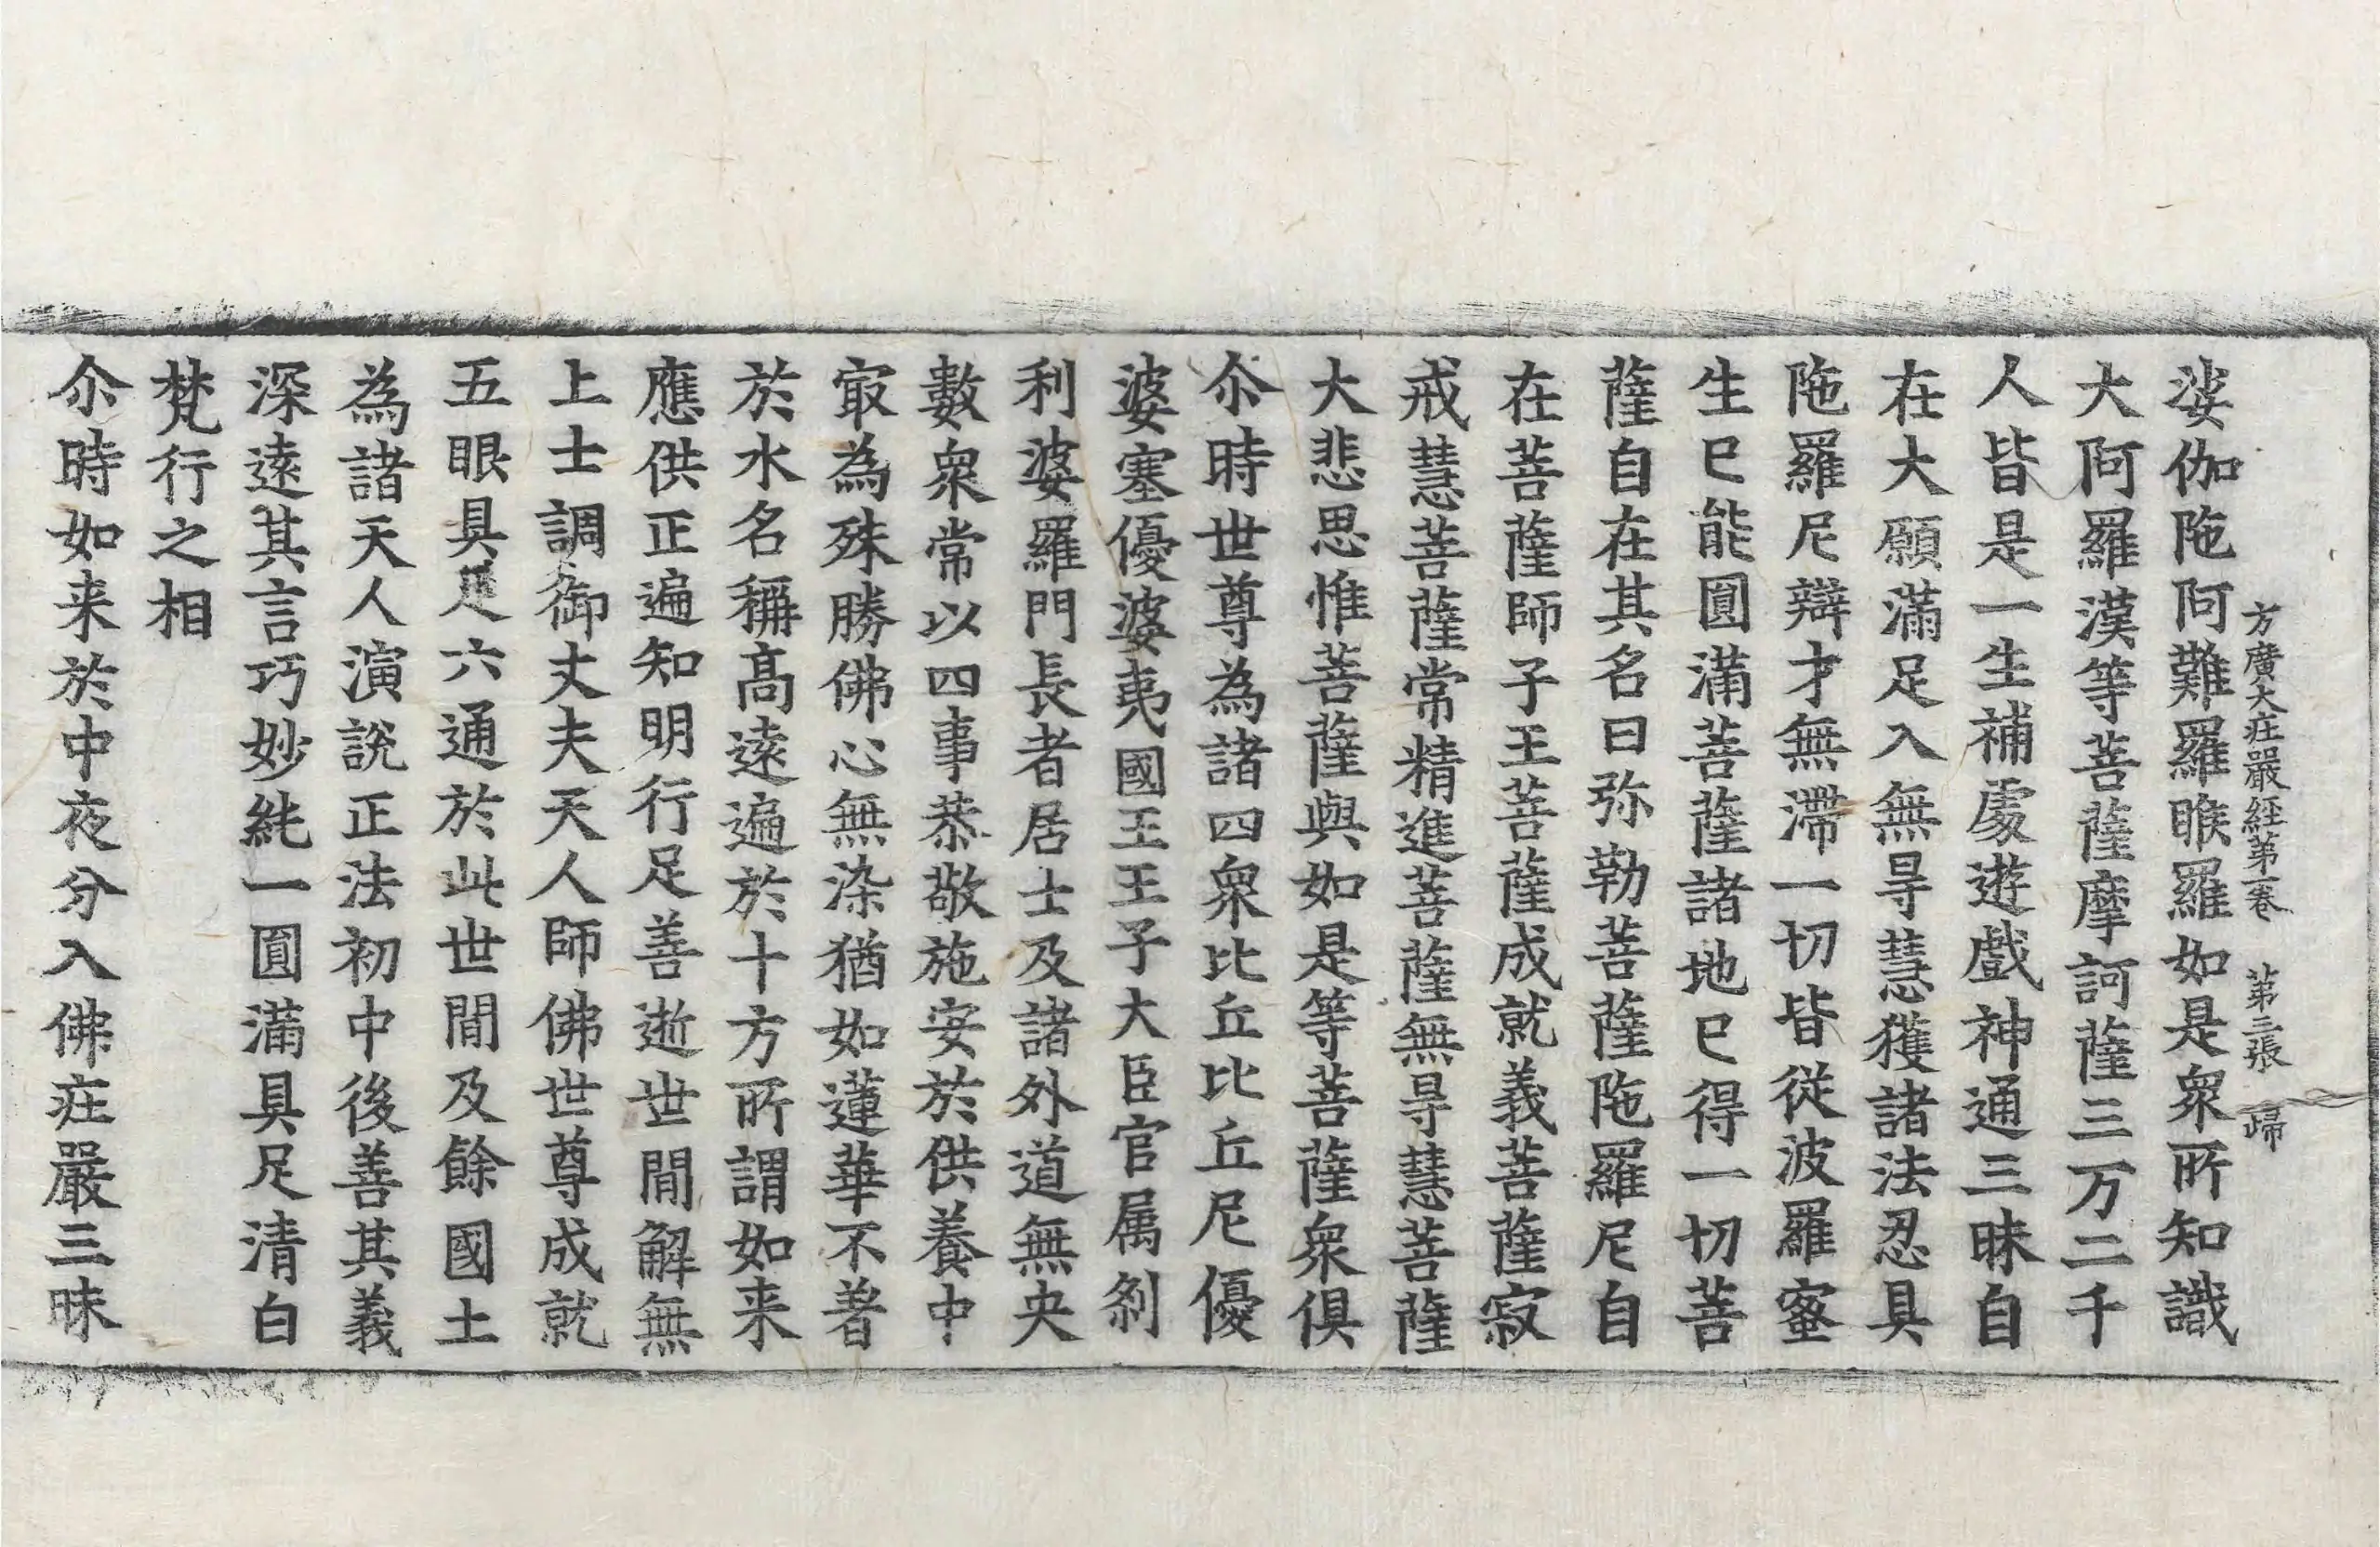 方廣大疘嚴経第一卷 第三張 歸
娑伽陁阿難羅睺羅如是衆所知識
大阿羅漢等菩薩摩訶薩三万二千
人皆是一生補處遊戲神通三昧自
在大願滿足入無㝵慧獲諸法忍具
陁羅尼辯才無滯一切皆從波羅蜜
生已能圓滿菩薩諸地已得一切菩
薩自在其名曰弥勒菩薩陁羅尼自
在菩薩師子王菩薩成就義菩薩寂
戒慧菩薩常精進菩薩無㝵慧菩薩
大悲思惟菩薩與如是等菩薩衆俱
尒時世尊為諸四衆比丘比丘尼優
婆塞優婆夷國王王子大臣官属剎
利婆羅門長者居士及諸外道無央
數衆常以四事恭敬施安於供養中
㝡為殊勝佛心無染猶如蓮華不著
於水名稱高遠遍於十方所謂如来
應供正遍知明行足善逝世間解無
上士調御丈夫天人師佛世尊成就
五眼具足六通於此世間及餘國土
為諸天人演說正法初中後善其義
深遠其言巧妙純一圓滿具足清白
梵行之相
尒時如来於中夜分入佛疘嚴三昧